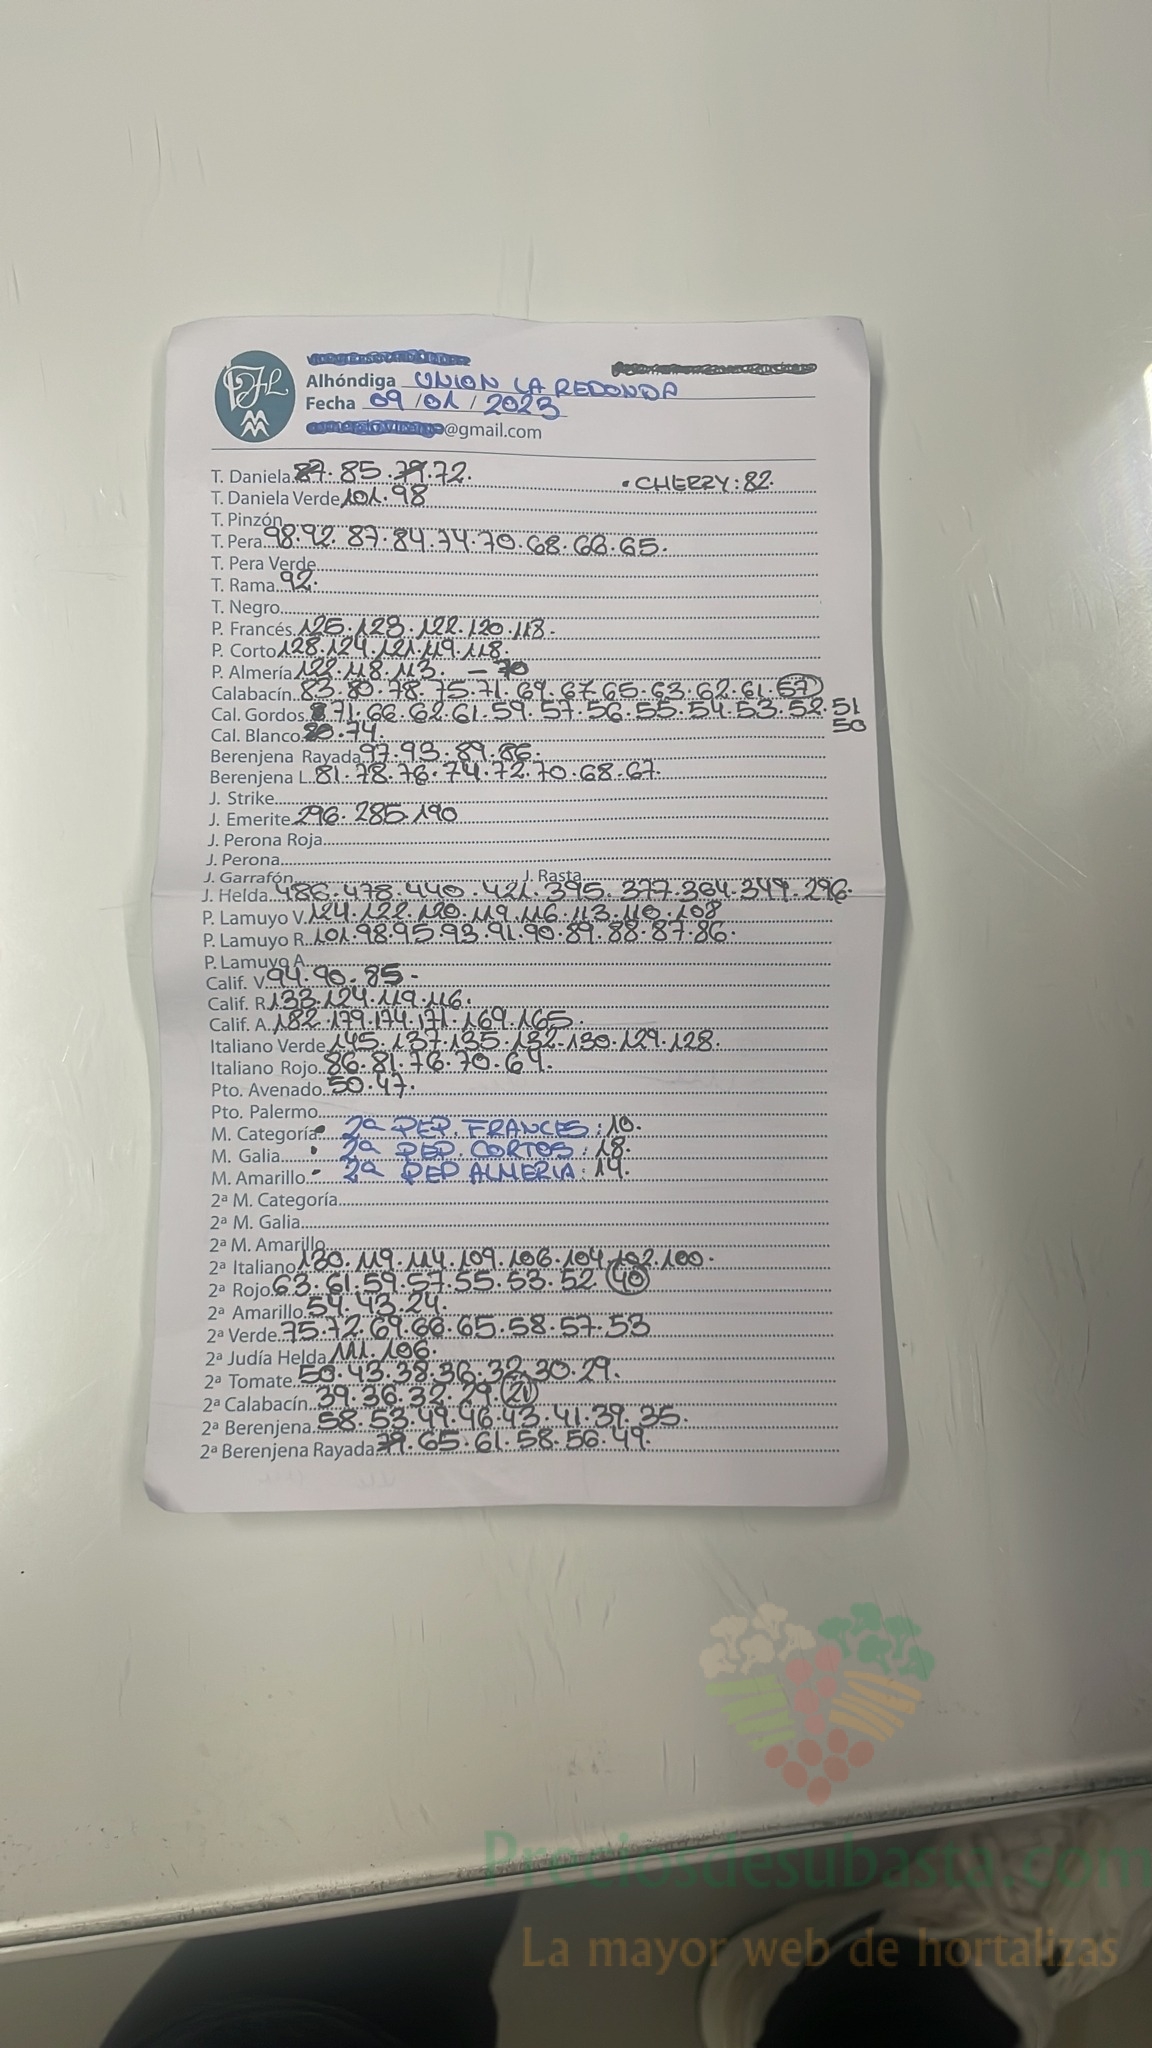 Alhóndiga UNION LA REDONDA
Fecha 09 / 01 / 2023
@gmail.com
T. Daniela 87. 85. 79. 72. • CHERRY: 82.
T. Daniela Verde 101. 98
T. Pinzón
T. Pera 98. 92. 87. 84. 74. 70. 68. 66. 65.
T. Pera Verde
T. Rama 92.
T. Negro
P. Francés 125. 123. 122. 120. 118.
P. Corto 128. 124. 121. 119. 118.
P. Almería 122. 118. 113. — 70
Calabacín 83. 80. 78. 75. 71. 69. 67. 65. 63. 62. 61. 57
Cal. Gordos 71. 66. 62. 61. 59. 57. 56. 55. 54. 53. 52. 51
50
Cal. Blanco 80. 74.
Berenjena Rayada 97. 93. 89. 86.
Berenjena L. 81. 78. 76. 74. 72. 70. 68. 67.
J. Strike
J. Emerite 296. 285. 190
J. Perona Roja
J. Perona
J. Garrafón J. Rasta
J. Helda 486. 478. 440. 421. 395. 377. 364. 349. 296.
P. Lamuyo V. 124. 122. 120. 119. 116. 113. 110. 108
P. Lamuyo R. 101. 98. 95. 93. 91. 90. 89. 88. 87. 86.
P. Lamuyo A.
Calif. V. 94. 90. 85.
Calif. R. 133. 124. 119. 116.
Calif. A. 182. 179. 174. 171. 169. 165.
Italiano Verde 145. 137. 135. 132. 130. 129. 128.
Italiano Rojo 86. 81. 76. 70. 64.
Pto. Avenado 50. 47.
Pto. Palermo
M. Categoría • 2ª PEP. FRANCES: 10.
M. Galia • 2ª PEP. CORTOS: 18.
M. Amarillo • 2ª PEP ALMERIA: 14.
2ª M. Categoría
2ª M. Galia
2ª M. Amarillo
2ª Italiano 130. 119. 114. 109. 106. 104. 102. 100.
2ª Rojo 63. 61. 59. 57. 55. 53. 52 40
2ª Amarillo 54. 43. 24.
2ª Verde 75. 72. 69. 66. 65. 58. 57. 53
2ª Judía Helda 111. 106.
2ª Tomate 50. 43. 38. 36. 32. 30. 29.
2ª Calabacín 39. 36. 32. 29. 21
2ª Berenjena 58. 53. 49. 46. 43. 41. 39. 35.
2ª Berenjena Rayada 79. 65. 61. 58. 56. 49.
Preciosdesubasta.com
La mayor web de hortalizas